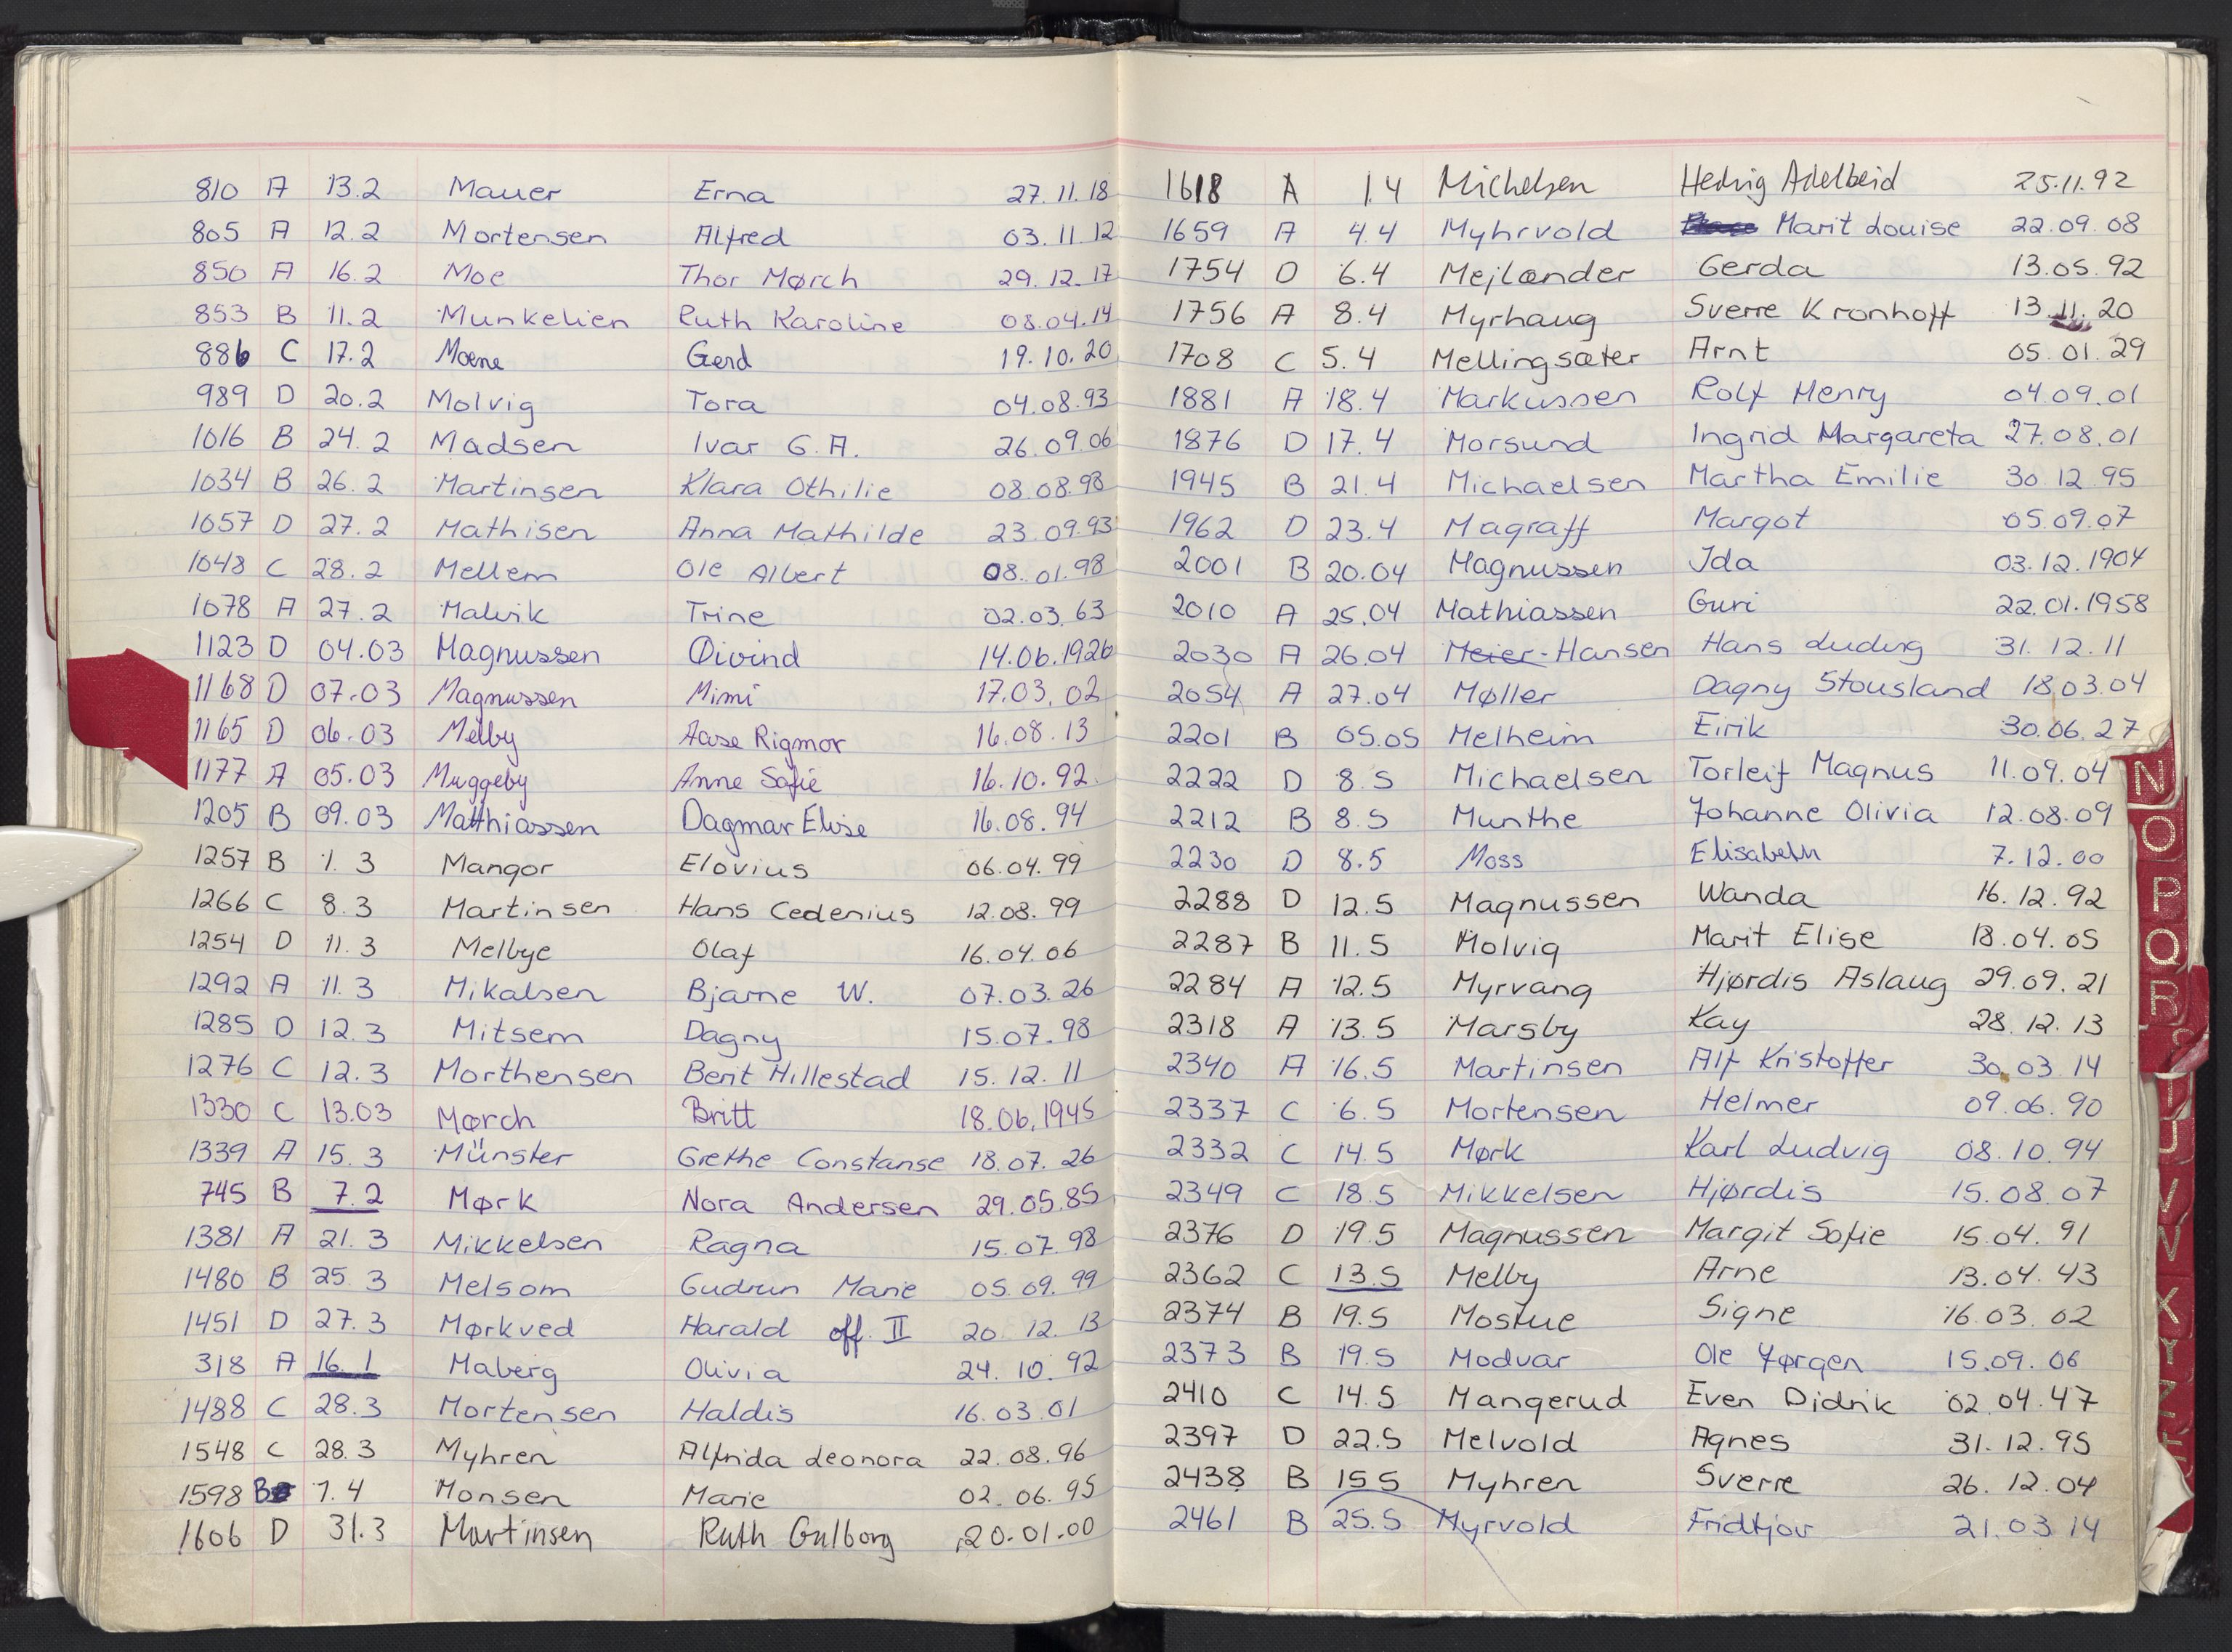 810 A 13.2 Mauer Erna 27.11.18
805 A 12.2 Mortensen Alfred 03.11.12
850 A 16.2 Moe Thor Mørch 29.12.17
853 B 11.2 Munkelien Ruth Karoline 08.04.14
886 C 17.2 Moene Gerd 19.10.20
989 D 20.2 Molvig Tora 04.08.93
1016 B 24.2 Madsen Ivar G.A. 26.09.06
1034 B 26.2 Martinsen Klara Othilie 08.08.98
1057 D 27.2 Mathisen Anna Mathilde 23.09.93
1048 C 28.2 Mellem Ole Albert 08.01.98
1078 A 27.2 Malvik Trine 02.03.63
1123 D 04.03 Magnussen Øivind 14.06.1926
1168 D 07.03 Magnussen Mimi 17.03.02
1165 D 06.03 Melby Aase Rigmor 16.08.13
1177 A 05.03 Muggeby Anne Sofie 16.10.92
1205 B 09.03 Matthiassen Dagmar Elise 16.08.94
1257 B 1.3 Mangor Elovius 06.04.99
1266 C 8.3 Martinsen Hans Cedenius 12.08.99
1254 D 11.3 Melbye Olaf 16.04.06
1292 A 11.3 Mikalsen Bjarne W. 07.03.26
1285 D 12.3 Mitsem Dagny 15.07.98
1276 C 12.3 Morthensen Berit Hillestad 15.12.11
1330 C 13.03 Mørch Britt 18.06.1945
1339 A 15.3 Münster Grethe Constanse 18.07.26
745 B 7.2 Mørk Nora Andersen 29.05.85
1381 A 21.3 Mikkelsen Ragna 15.07.98
1480 B 25.3 Melsom Gudrun Marie 05.09.99
1451 D 27.3 Mørkved Harald off. II 20.12.13
318 A 16.1 Maberg Olivia 24.10.92
1488 C 28.3 Mortensen Haldis 16.03.01
1548 C 28.3 Myhren Alfrida Leonora 22.08.96
1598 B 1.4 Monsen Marie 02.06.95
1606 D 31.3 Martinsen Ruth Gulborg 20.01.00
1618 A 1.4 Michelsen Hedvig Adelheid 25.11.92
1659 A 4.4 Myhrvold Marit Louise 22.09.08
1754 D 6.4 Mejlænder Gerda 13.05.92
1756 A 8.4 Myrhaug Sverre Kronhoff 13.11.20
1708 C 5.4 Mellingsæter Arnt 05.01.29
1881 A 18.4 Markussen Rolf Henry 04.09.01
1876 D 17.4 Morsund Ingrid Margareta 27.08.01
1945 B 21.4 Michaelsen Martha Emilie 30.12.95
1962 D 23.4 Magraff Margot 05.09.07
2001 B 20.04 Magnussen Ida 03.12.1904
2010 A 25.04 Mathiassen Guri 22.01.1958
2030 A 26.04 Meier-Hansen Hans Ludvig 31.12.11
2054 A 27.04 Møller Dagny Stousland 18.03.04
2201 B 05.05 Melheim Eirik 30.06.27
2222 D 8.5 Michaelsen Torleif Magnus 11.09.04
2212 B 8.5 Munthe Johanne Olivia 12.08.09
2230 D 8.5 Moss Elisabeth 7.12.00
2288 D 12.5 Magnussen Wanda 16.12.92
2287 B 11.5 Molvig Marit Elise 18.04.05
2284 A 12.5 Myrvang Hjørdis Aslaug 29.09.21
2318 A 13.5 Marsby Kay 28.12.13
2340 A 16.5 Martinsen Alf Kristoffer 30.03.14
2337 C 6.5 Mortensen Helmer 09.06.90
2332 C 14.5 Mørk Karl Ludvig 08.10.94
2349 C 18.5 Mikkelsen Hjørdis 15.08.07
2376 D 19.5 Magnussen Margit Sofie 15.04.91
2362 C 13.5 Melby Arne 13.04.43
2374 B 19.5 Mostue Signe 16.03.02
2373 B 19.5 Modvar Ole Jørgen 15.09.06
2410 C 14.5 Mangerud Even Didrik 02.04.47
2397 D 22.5 Melvold Agnes 31.12.95
2438 B 15.5 Myhren Sverre 26.12.04
2461 B 25.5 Myrvold Fridtjov 21.03.14
N
O
P
Q
R
T
U
V
W
X
Y
Z
Æ